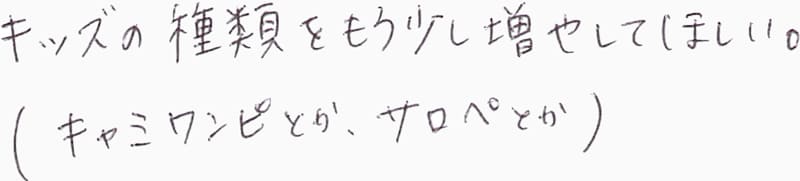 キッズの種類をもう少し増やしてほしい。
(キャミワンピとか、サロペとか)